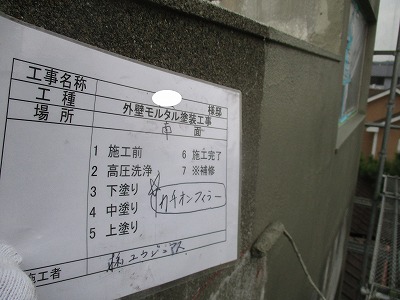 工事名称 様邸
工種 外壁モルタル塗装工事
場所 南面
1 施工前 6 施工完了
2 高圧洗浄 7 ※補修
3 下塗り カチオンフィラー
4 中塗り
5 上塗り
施工者